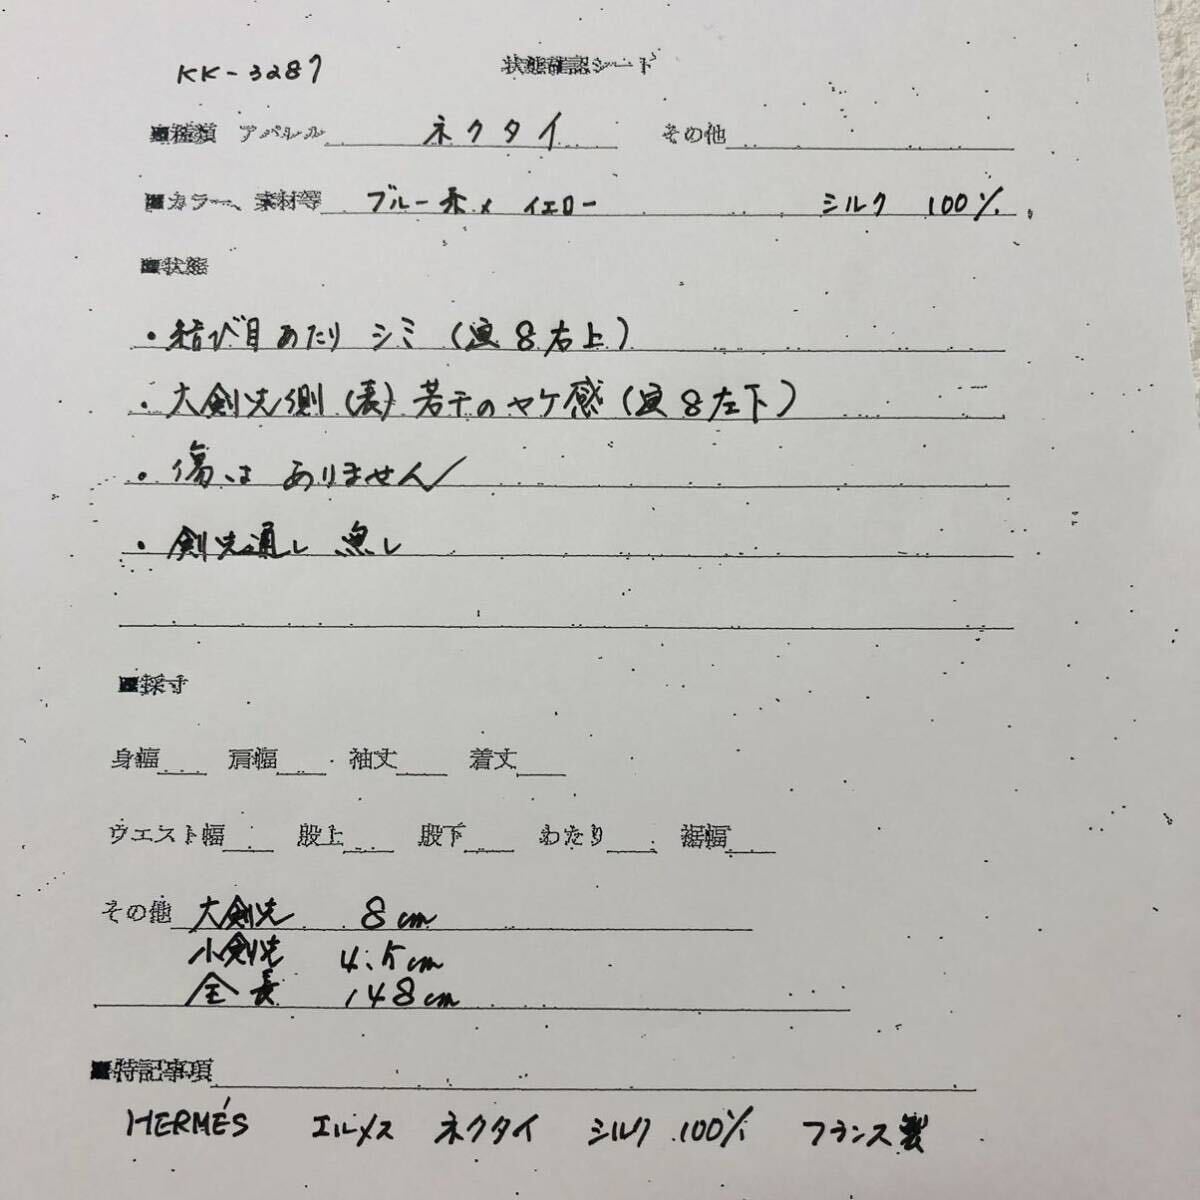 KK-3287
状態確認シート
■種類 アパレル ネクタイ その他
■カラー、素材等 ブルー系× イエロー シルク 100%
■状態
・結び目あたり シミ (画8右上)
・大剣先側 (表) 若干のヤケ感 (画8左下)
・傷は ありません
・剣先通し 無し
■採寸
身幅 肩幅 袖丈 着丈
ウエスト幅 股上 股下 わたり 裾幅
その他 大剣先 8cm
小剣先 4.5cm
全長 148cm
■特記事項
HERMÉS エルメス ネクタイ シルク 100% フランス製